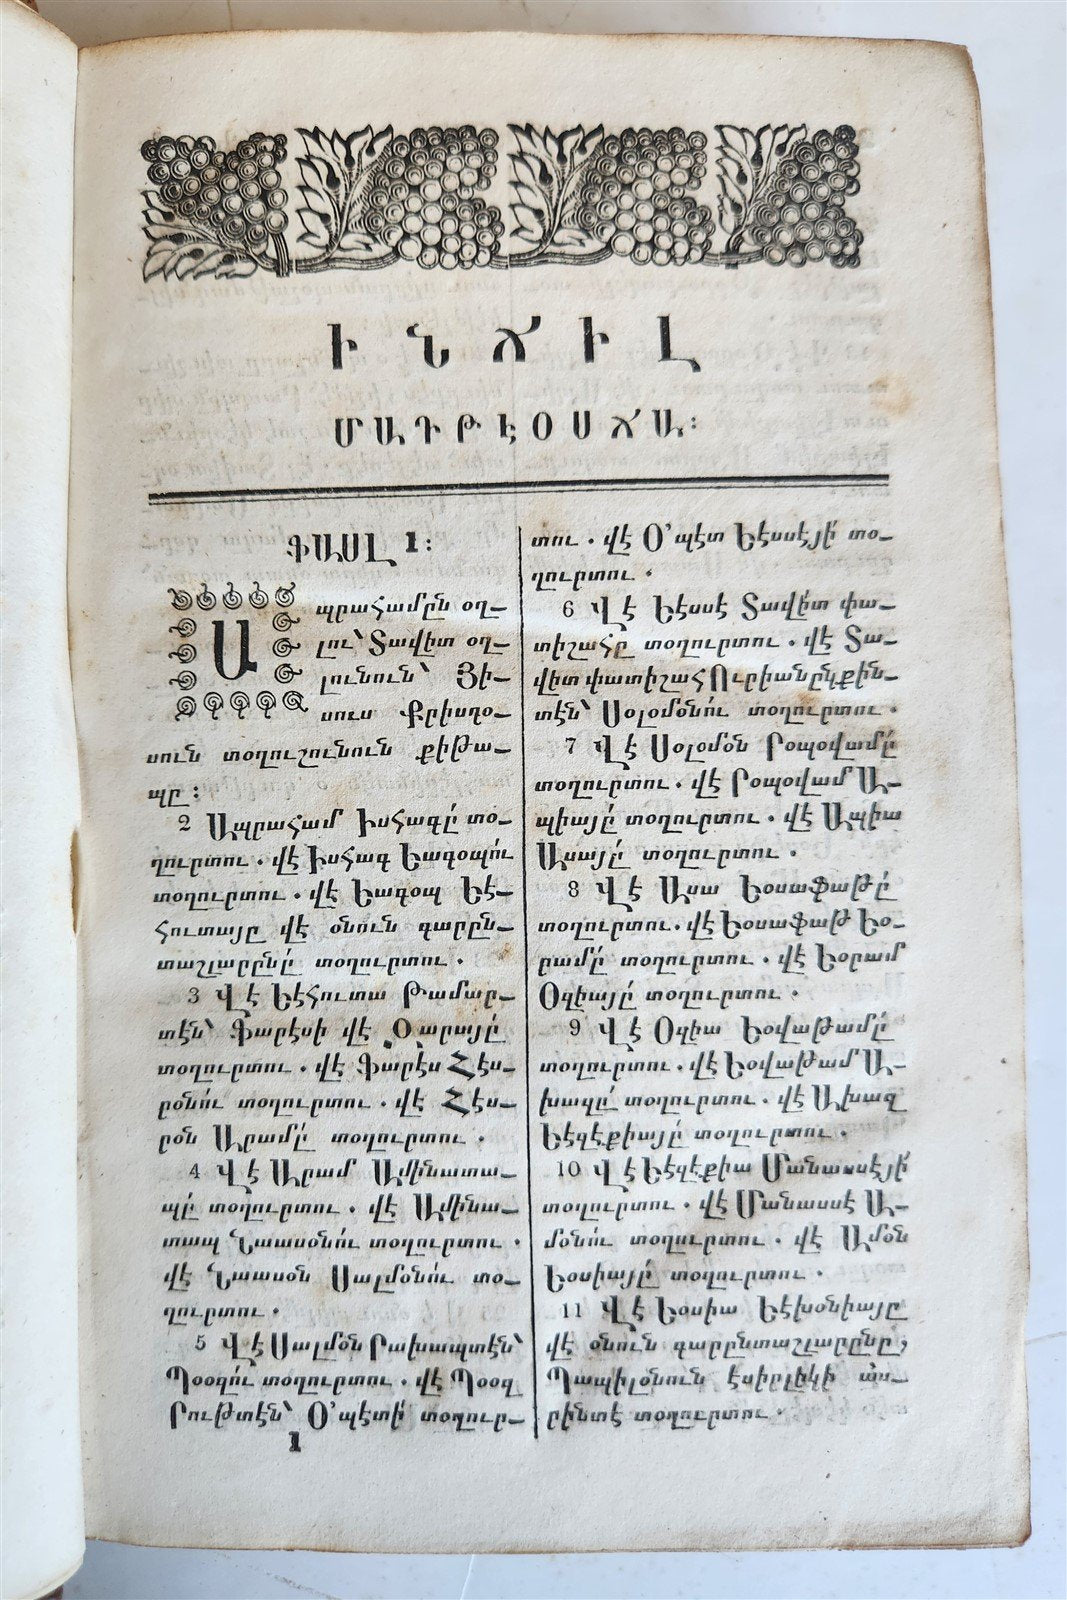 ԻՆՃԻԼ
ՄԱԴԹԷՕՍՃԱ։
ՖԱՍԼ 1։
Ապրահամըն օղ֊
լու՝ Տավիտ օղ֊
լունուն՝ Յի֊
սուս Քրիսդօ֊
սուն տօղուշունուն քիթա֊
պը։
2 Ապրահամ Իսհագը՛ տօ֊
ղուրտու. վէ Իսհագ Եագօպու՛
տօղուրտու. վէ Եագօպ Եէ֊
հուտայը վէ օնուն գարըն֊
տաշլարընը՛ տօղուրտու.
3 Վէ Եէհուտա Թամար֊
տէն՝ Ֆարէսի վէ Օարայը՛
տօղուրտու. վէ Ֆարէս Հէս֊
րօնու՛ տօղուրտու. վէ Հէս֊
րօն Արամը՛ տօղուրտու.
4 Վէ Արամ Ամինատա֊
պը՛ տօղուրտու. վէ Ամինա֊
տապ Նաասօնու՛ տօղուրտու.
վէ Նաասօն Սալմօնու՛ տօ֊
ղուրտու.
5 Վէ Սալմօն Րախապտէն՝
Պօօզու՛ տօղուրտու. վէ Պօօզ
Րութտէն՝ Օ՚պէտի՛ տօղուր֊
տու. վէ Օ՚պէտ Եէսսէյի՛ տօ֊
ղուրտու.
6 Վէ Եէսսէ Տավիտ փա֊
տիշահը տօղուրտու. վէ Տա֊
վիտ փատիշահ Ուրիանընկքին֊
տէն՝ Սօլօմօնու՛ տօղուրտու.
7 Վէ Սօլօմօն Րօպօվամը՛
տօղուրտու. վէ Րօպօվամ Ա֊
պիայը՛ տօղուրտու. վէ Ապիա
Ասայը՛ տօղուրտու.
8 Վէ Ասա Եօսաֆաթը՛
տօղուրտու. վէ Եօսաֆաթ Եօ֊
րամը՛ տօղուրտու. վէ Եօրամ
Օզիայը՛ տօղուրտու.
9 Վէ Օզիա Եօվաթամը՛
տօղուրտու. վէ Եօվաթամ Ա֊
խազը՛ տօղուրտու. վէ Ախազ
Եէզէքիայը՛ տօղուրտու.
10 Վէ Եէզէքիա Մանասսէյի՛
տօղուրտու. վէ Մանասսէ Ա֊
մօնու՛ տօղուրտու. վէ Ամօն
Եօսիայը՛ տօղուրտու.
11 Վէ Եօսիա Եէխօնիայը
վէ օնուն գարընտաշլարընը,
Պապիլօնուն էսիրլիկի ա֊
րինտէ տօղուրտու.
1